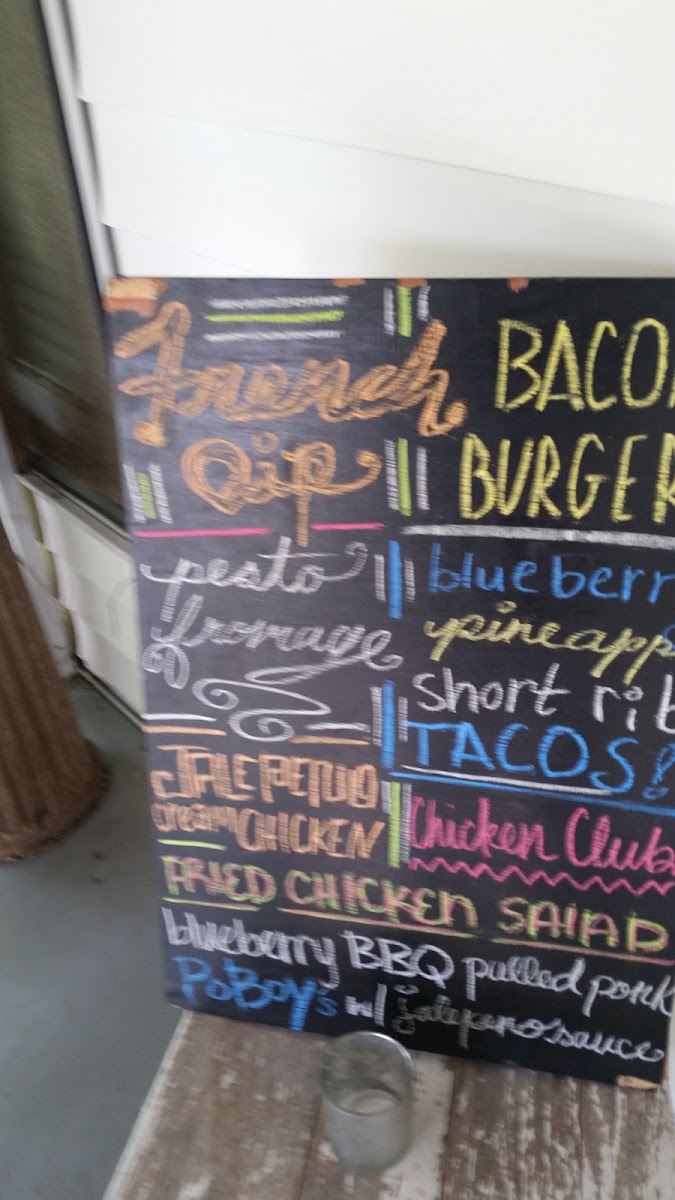 French
Dip
BACO
BURGER
pesto
fromage
blueberr
pineapp
short rib
TACOS!
JALEPENO
cream CHICKEN
Chicken Club
FRIED CHICKEN SALAD
blueberry BBQ pulled pork
PoBoy's w/ jalepano sauce